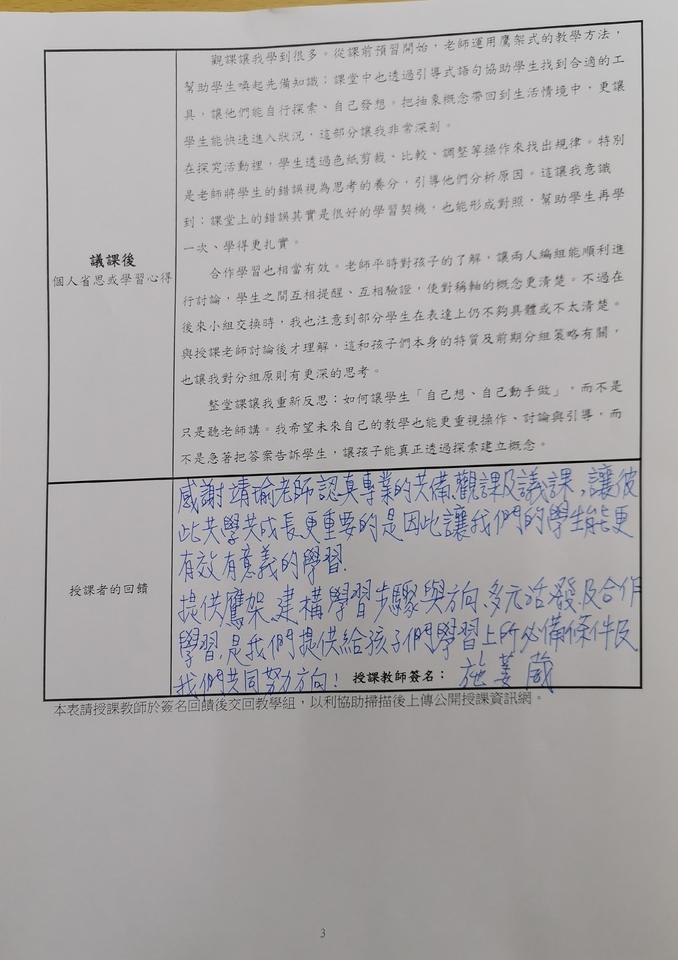 觀課讓我學到很多。從課前預習開始，老師運用鷹架式的教學方法，
幫助學生喚起先備知識；課堂中也透過引導式語句協助學生找到合適的工
具，讓他們能自行探索、自己發想。把抽象概念帶回到生活情境中，更讓
學生能快速進入狀況，這部分讓我非常深刻。
在探究活動裡，學生透過色紙剪裁、比較、調整等操作來找出規律。特別
是老師將學生的錯誤視為思考的養分，引導他們分析原因。這讓我意識
到：課堂上的錯誤其實是很好的學習契機，也能形成對照，幫助學生再學
一次、學得更扎實。
合作學習也相當有效。老師平時對孩子的了解，讓兩人編組能順利進
行討論，學生之間互相提醒、互相驗證，使對稱軸的概念更清楚。不過在
後來小組交換時，我也注意到部分學生在表達上仍不夠具體或不太清楚。
與授課老師討論後才理解，這和孩子們本身的特質及前期分組策略有關，
也讓我對分組原則有更深的思考。
整堂課讓我重新反思：如何讓學生「自己想、自己動手做」，而不是
只是聽老師講。我希望未來自己的教學也能更重視操作、討論與引導，而
不是急著把答案告訴學生，讓孩子能真正透過探索建立概念。
議課後
個人省思或學習心得
感謝靖瑜老師認真專業的共備、觀課及議課，讓彼
此共學共成長，更重要的是因此讓我們的學生能更
有效有意義的學習.
提供鷹架、建構學習步驟與方向、多元活潑及合作
學習，是我們提供給孩子們學習上所必備條件及
我們共同努力方向！
授課者的回饋
授課教師簽名：施
本表請授課教師於簽名回饋後交回教學組，以利協助掃描後上傳公開授課資訊網。
3